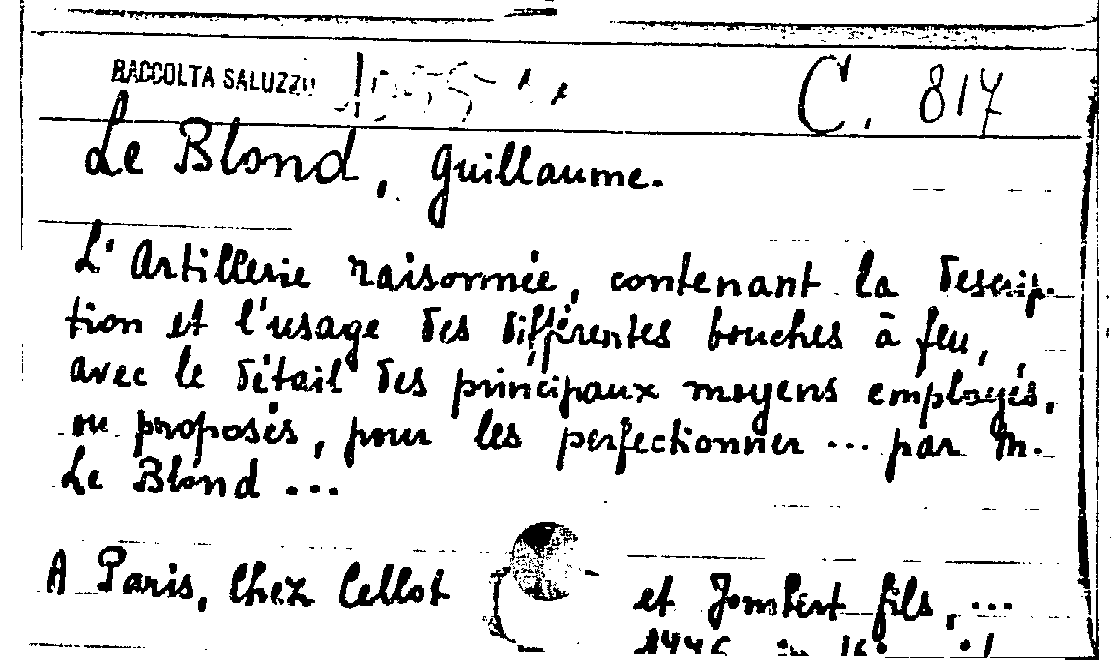 RACCOLTA SALUZZO
C. 817
Le Blond, Guillaume.
L'Artillerie raisonnée, contenant la descrip-
tion et l'usage des différentes bouches à feu,
avec le détail des principaux moyens employés,
ou proposés, pour les perfectionner ... par M.
Le Blond ...
A Paris, Chez Cellot et Jombert fils, ...